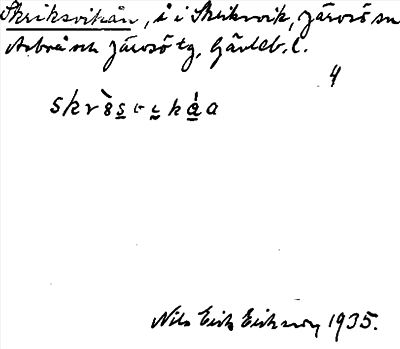 Skriksvikån, å i Skriksvik, Järvsö sn
Arbrå och Järvsö tg, Gävleb. l.
4
Nils Erik Eriksson 1935.